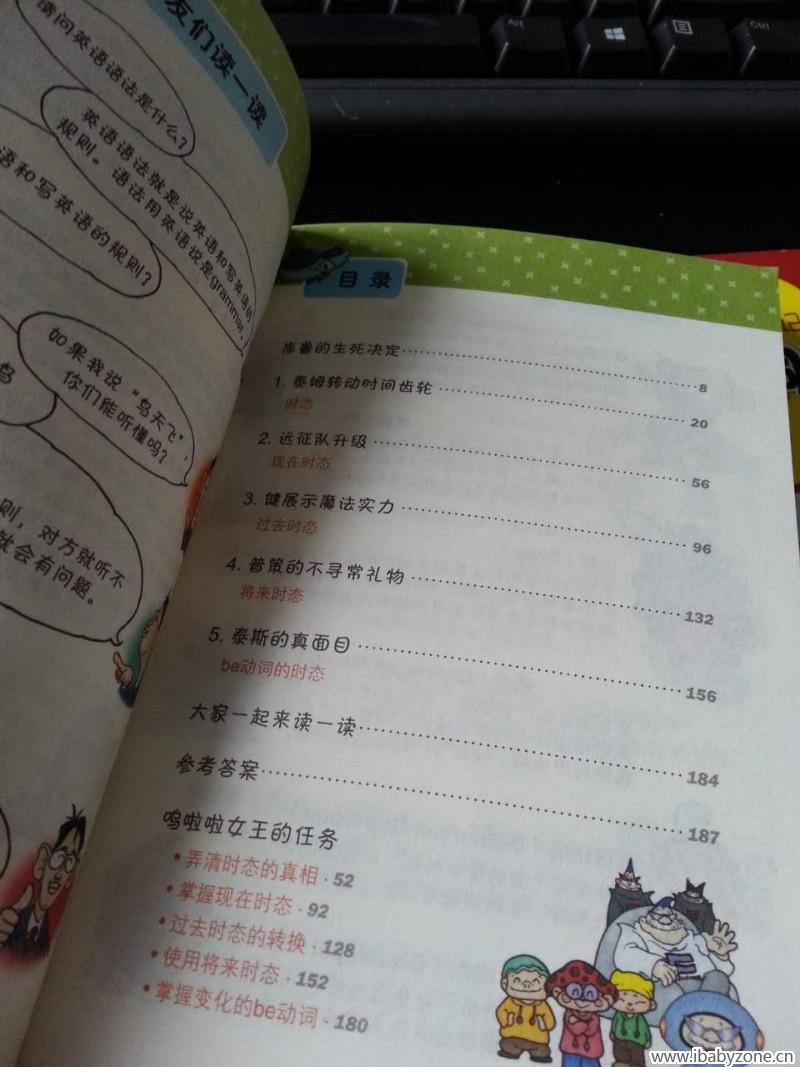 友们读一读
请问英语语法是什么?
英语语法就是说英语和写英语的
规则。语法用英语说是grammar。
语和写英语的规则?
如果我说“鸟天飞”,
你们能听懂吗?
鸟
则,对方就听不
就会有问题。
目录
库鲁的生死决定 8
1. 泰姆转动时间齿轮 20
时态
2. 远征队升级 56
现在时态
3. 健展示魔法实力 96
过去时态
4. 普策的不寻常礼物 132
将来时态
5. 泰斯的真面目 156
be动词的时态
大家一起来读一读 184
参考答案 187
呜啦啦女王的任务
• 弄清时态的真相 · 52
• 掌握现在时态 · 92
• 过去时态的转换 · 128
• 使用将来时态 · 152
• 掌握变化的be动词 · 180
Alt
Ctrl
记
www.ibabyzone.cn